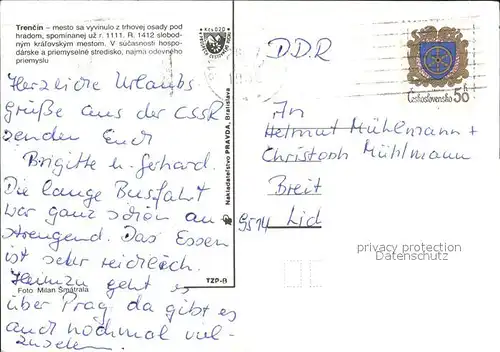 Trenčín – mesto sa vyvinulo z trhovej osady pod
hradom, spomínanej už r. 1111. R. 1412 slobod-
ným kráľovským mestom. V súčasnosti hospo-
dárske a priemyselné stredisko, najmä odevného
priemyslu
Kčs 0,20
Herzliche Urlaubs
grüße aus der CSSR
senden Euch
Brigitte u. Gerhard.
Die lange Busfahrt
war ganz schön an
strengend. Das Essen
ist sehr reichlich.
Heimzu geht es
über Prag da gibt es
auch nochmal viel
zusehen.
Foto Milan Šmátrala
TZP-B
Nakladateľstvo PRAVDA, Bratislava
DDR
Československo 50 h
An
Helmut Mühlmann +
Christoph Mühlmann
Breit
9514 Lid
privacy protection
Datenschutz